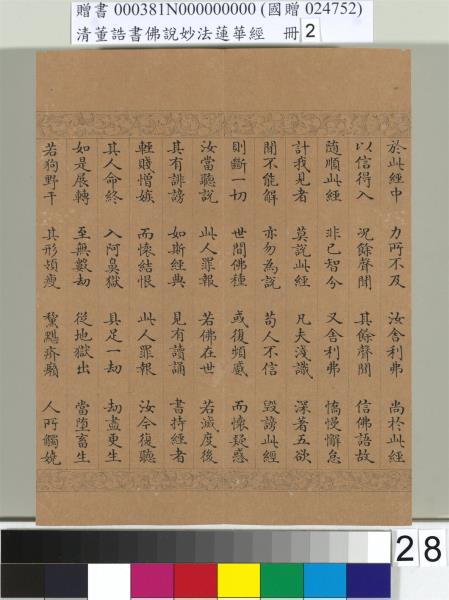 贈書 000381N000000000 (國贈 024752)
清董誥書佛說妙法蓮華經 冊 2
於此經中 力所不及 汝舍利弗 尚於此經
以信得入 況餘聲聞 其餘聲聞 信佛語故
隨順此經 非己智分 又舍利弗 憍慢懈怠
計我見者 莫說此經 凡夫淺識 深著五欲
聞不能解 亦勿為說 苟人不信 毀謗此經
則斷一切 世間佛種 或復頻蹙 而懷疑惑
汝當聽說 此人罪報 若佛在世 若滅度後
其有誹謗 如斯經典 見有讀誦 書持經者
輕賤憎嫉 而懷結恨 此人罪報 汝今復聽
其人命終 入阿鼻獄 具足一劫 劫盡更生
如是展轉 至無數劫 從地獄出 當墮畜生
若狗野干 其形𩑔瘦 黧黮疥癩 人所觸嬈
28